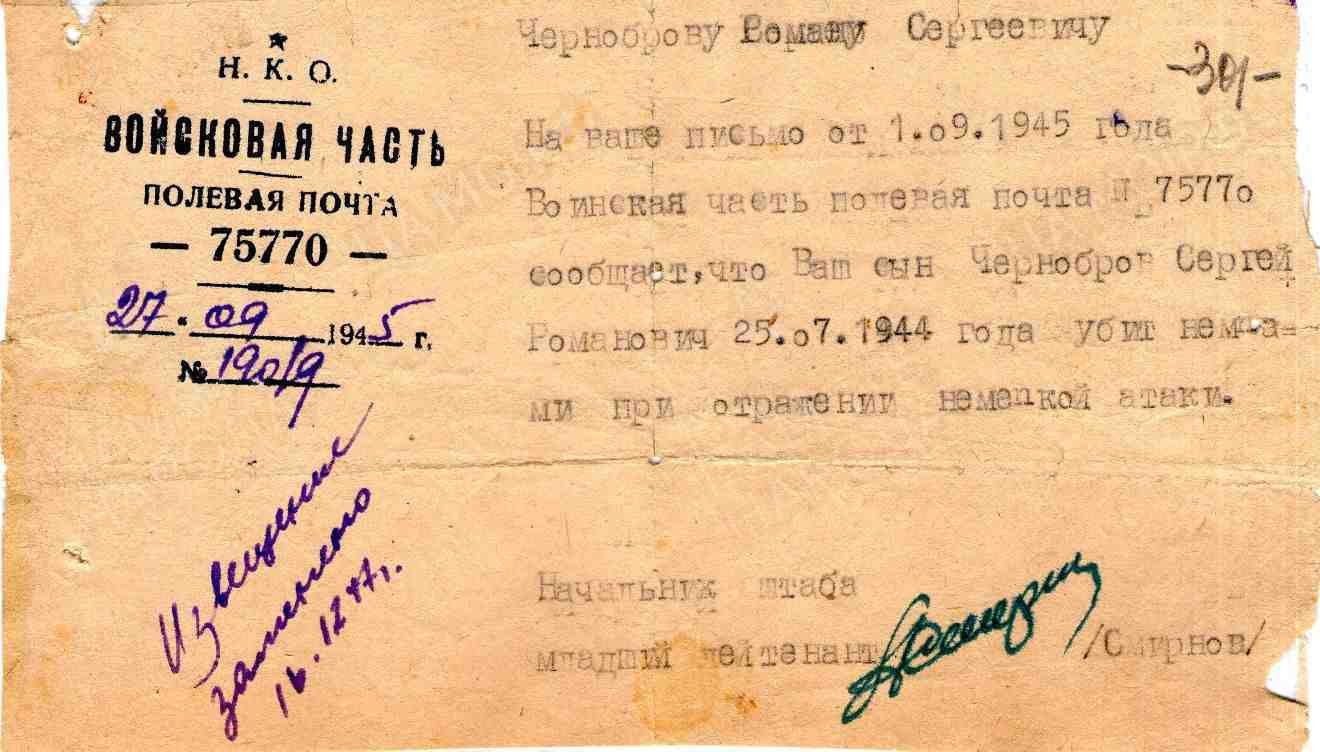 Н. К. О.
ВОЙСКОВАЯ ЧАСТЬ
ПОЛЕВАЯ ПОЧТА
— 75770 —
27. 09 1945 г.
№ 190/9
Извещение
заменено
16.12 47 г.
-301-
Черноброву Роману Сергеевичу
На ваше письмо от 1.o9.1945 года
Воинская часть полевая почта П 7577o
сообщает,что Ваш сын Чернобров Сергей
Романович 25.o7.1944 года убит немца=
ми при отражении немецкой атаки.
Начальник штаба
младший лейтенант /Смирнов/